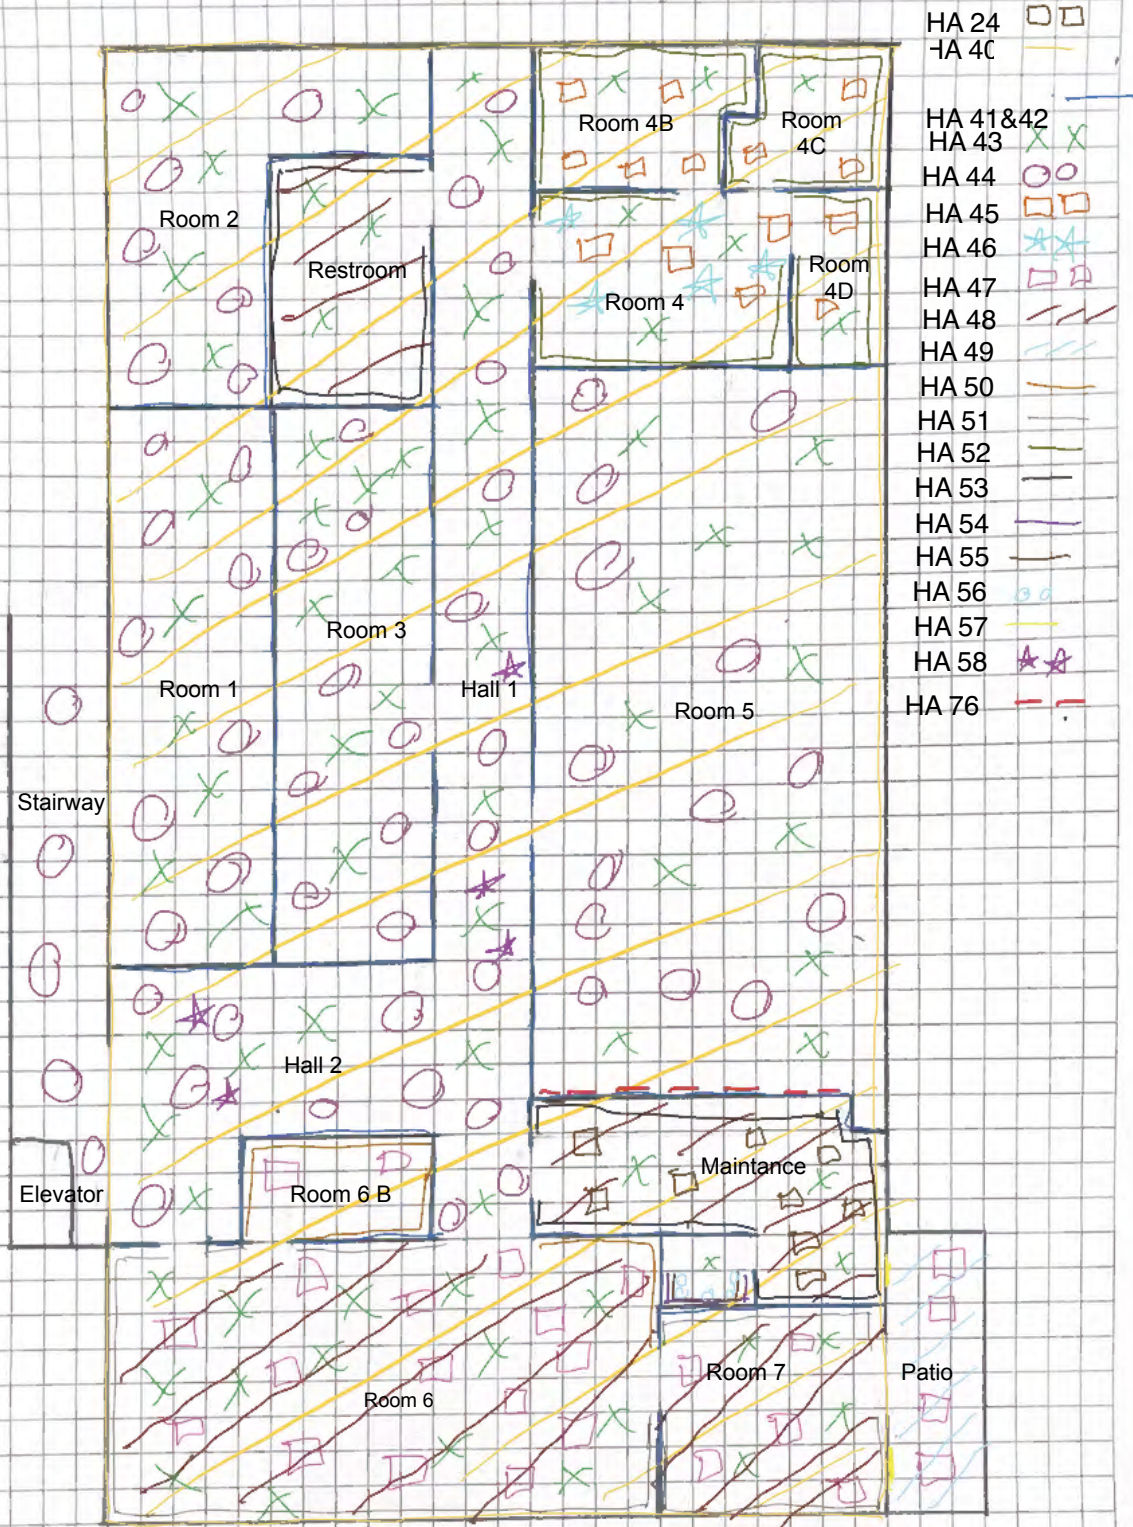 HA 24
HA 40
HA 41&42
HA 43
HA 44
HA 45
HA 46
HA 47
HA 48
HA 49
HA 50
HA 51
HA 52
HA 53
HA 54
HA 55
HA 56
HA 57
HA 58
HA 76
Room 4B
Room
4C
Room 2
Restroom
Room 4
Room
4D
Room 3
Room 1
Hall 1
Room 5
Stairway
Hall 2
Maintance
Elevator
Room 6 B
Room 6
Room 7
Patio